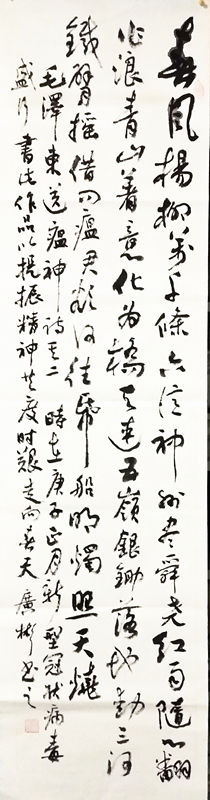 春風楊柳萬千條六億神州盡舜堯紅雨隨心翻
作浪青山著意化為橋天連五嶺銀鋤落地動三河
鐵臂搖借問瘟君欲何往紙船明燭照天燒
毛澤東送瘟神詩其二 時在庚子正月新型冠狀病毒
盛行書法作品以提振精神共度时艱走向春天廣彬书之